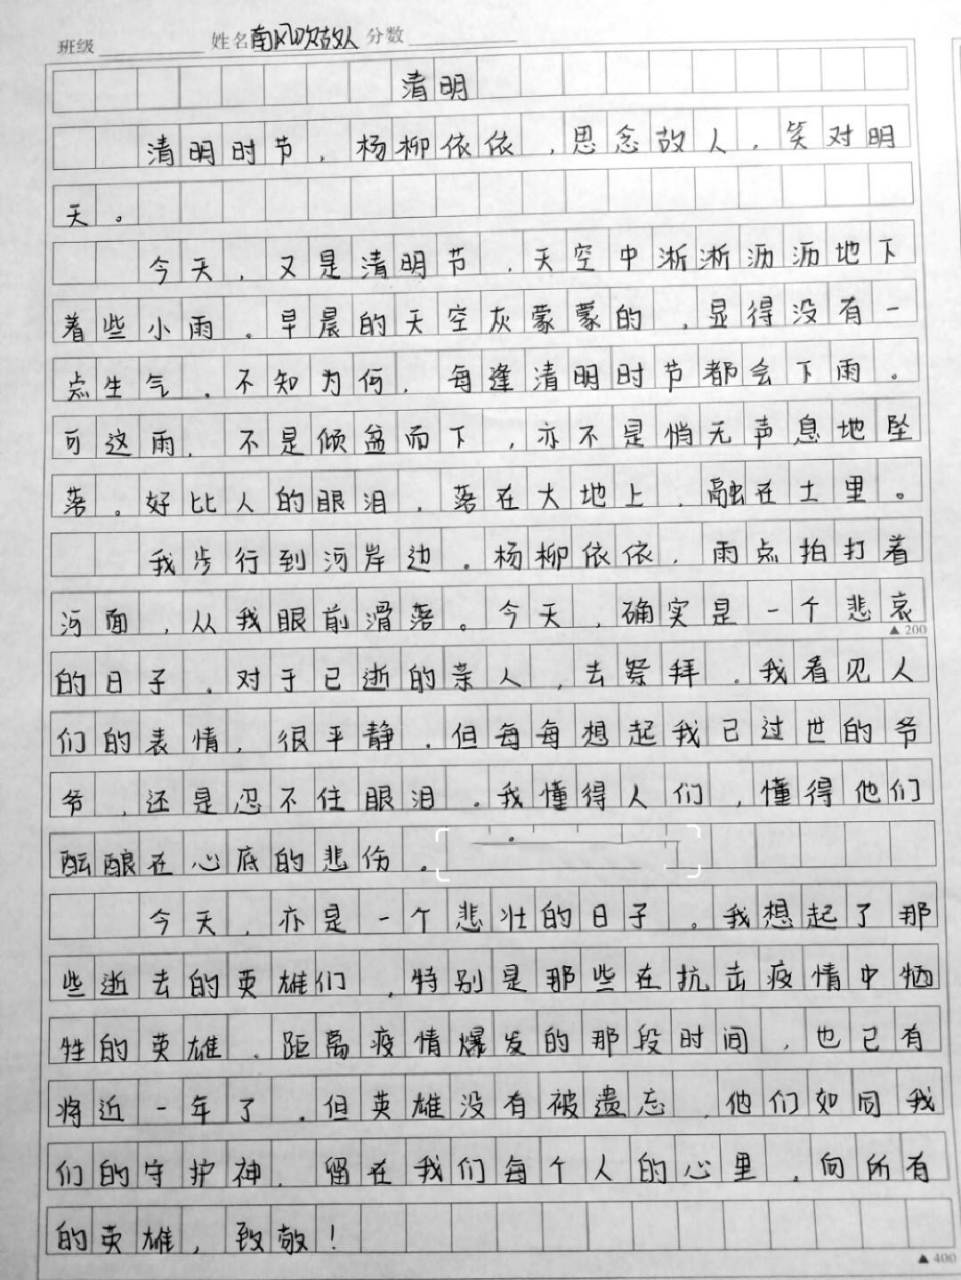 班级 姓名南风吹故人 分数
清明
清明时节，杨柳依依，思念故人，笑对明
天。
今天，又是清明节，天空中淅淅沥沥地下
着些小雨。早晨的天空灰蒙蒙的，显得没有一
点生气。不知为何，每逢清明时节都会下雨。
可这雨，不是倾盆而下，亦不是悄无声息地坠
落。好比人的眼泪，落在大地上，融在土里。
我步行到河岸边。杨柳依依，雨点拍打着
河面，从我眼前滑落。今天，确实是一个悲哀
▲200
的日子。对于已逝的亲人，去祭拜。我看见人
们的表情，很平静。但每每想起我已过世的爷
爷，还是忍不住眼泪。我懂得人们，懂得他们
酝酿在心底的悲伤。
今天，亦是一个悲壮的日子。我想起了那
些逝去的英雄们，特别是那些在抗击疫情中牺
牲的英雄。距离疫情爆发的那段时间，也已有
将近一年了。但英雄没有被遗忘，他们如同我
们的守护神，留在我们每个人的心里。向所有
的英雄，致敬！
▲400